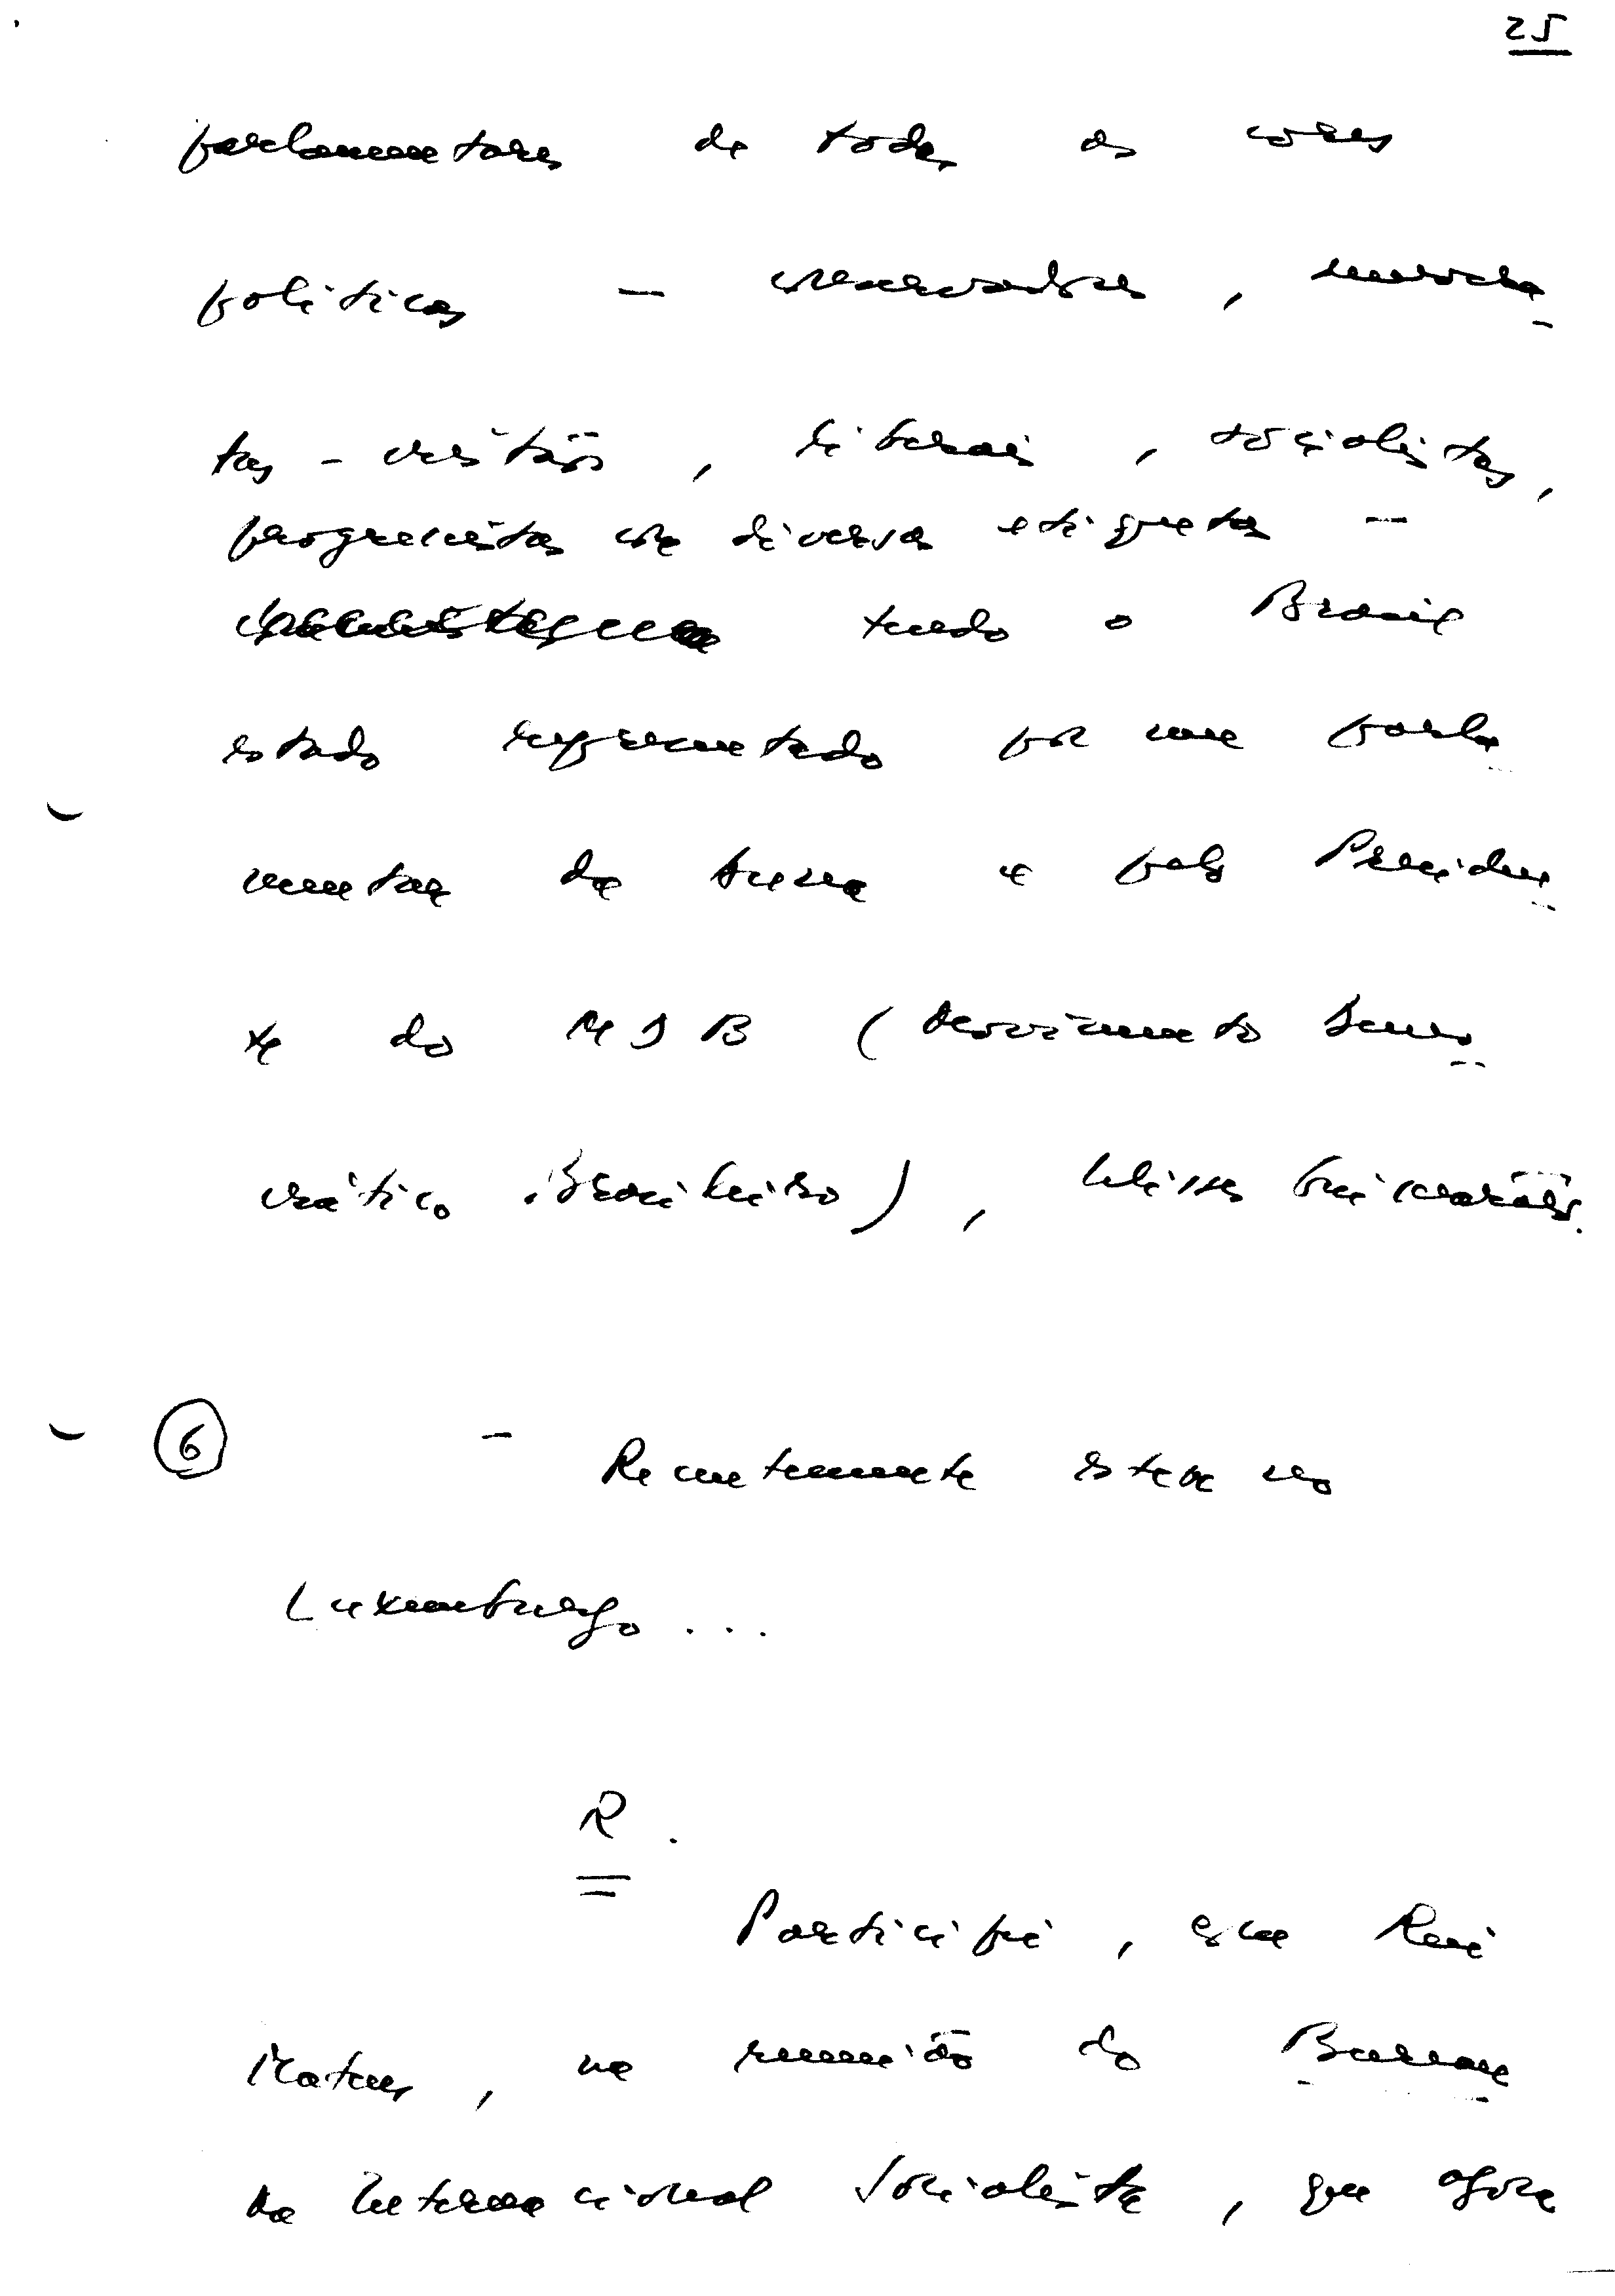 25
parlamentares de todas as cores
políticas — conservadores, democra-
tas-cristãos, liberais, socialistas,
progressistas com diversas etiquetas —
tendo o Brasil
estado representado por um parla-
mentar da Arena e pelo Presiden-
te do MDB (Movimento Demo-
crático Brasileiro), Ulisses Guimarães.
6 — Recentemente esteve no
Luxemburgo...
R.
Participei, com Rui
Mateus, na reunião do Bureau
da Internacional Socialista, que agora